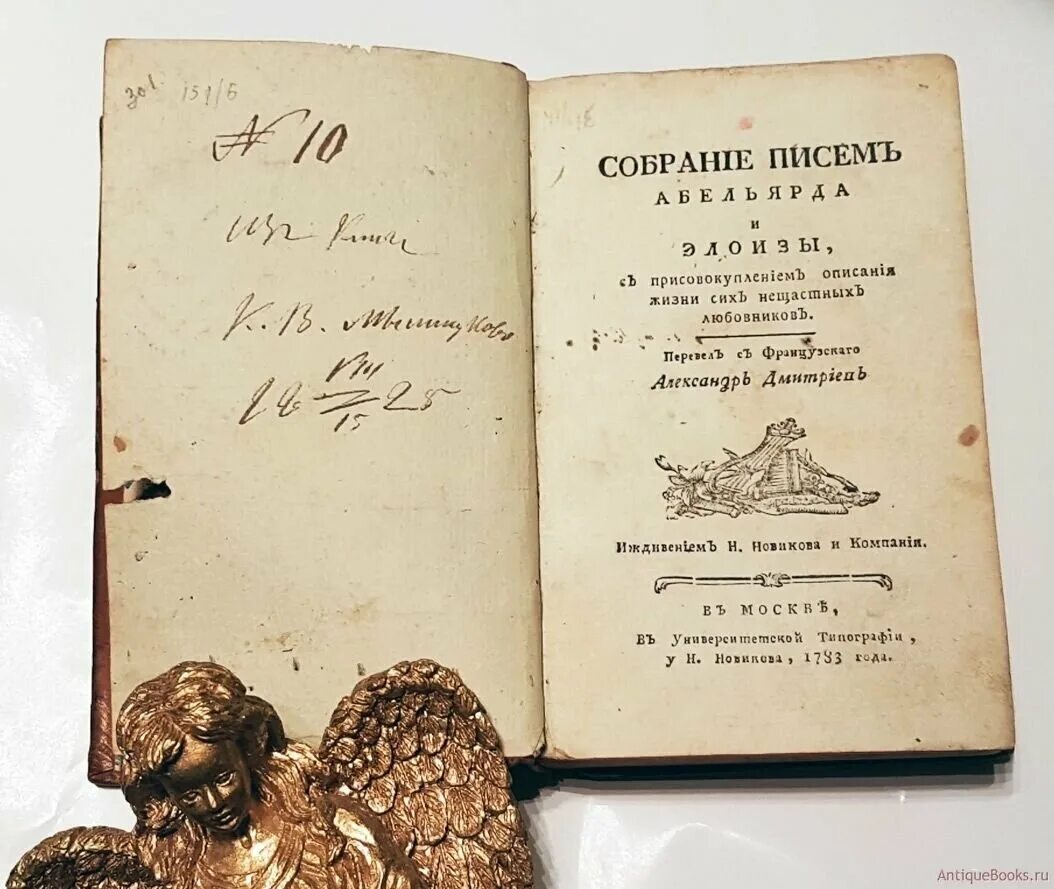 151/6
№ 10
Изъ книгъ
К. В.
VIII
15
СОБРАНІЕ ПИСЕМЪ
АБЕЛЬЯРДА
И
ЭЛОИЗЫ,
съ присовокупленіемъ описанія
жизни сихъ нещастныхъ
любовниковъ.
Перевелъ съ Французскаго
Александръ Дмитріевъ
Иждивеніемъ Н. Новикова и Компаніи.
ВЪ МОСКВѢ,
Въ Университетской Типографіи,
у Н. Новикова, 1783 года.
AntiqueBooks.ru